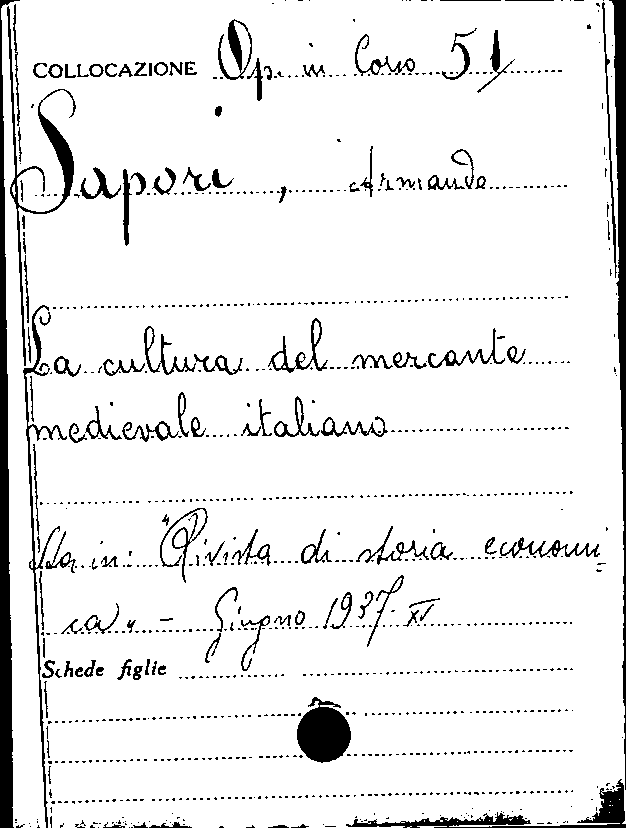 COLLOCAZIONE Op. in Corso 51
Sapori, Armando
La cultura del mercante
medievale italiano
Sta in: "Rivista di storia economi=
ca" - Giugno 1937-XV
Schede figlie